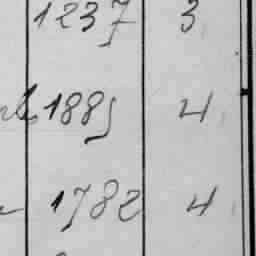 1237 3
1885 4
1782 4